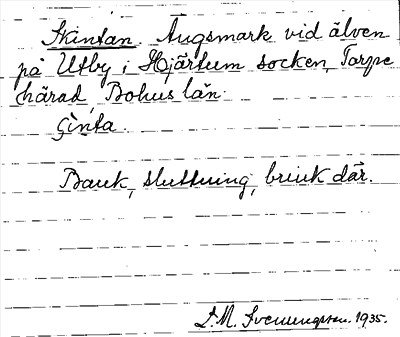 Skintan. Ängsmark vid älven
på Utby i Hjärtum socken, Torpe
härad, Bohus län.
çìnta.
Bank, sluttning, brink där.
S. M. Svenungsson. 1935.